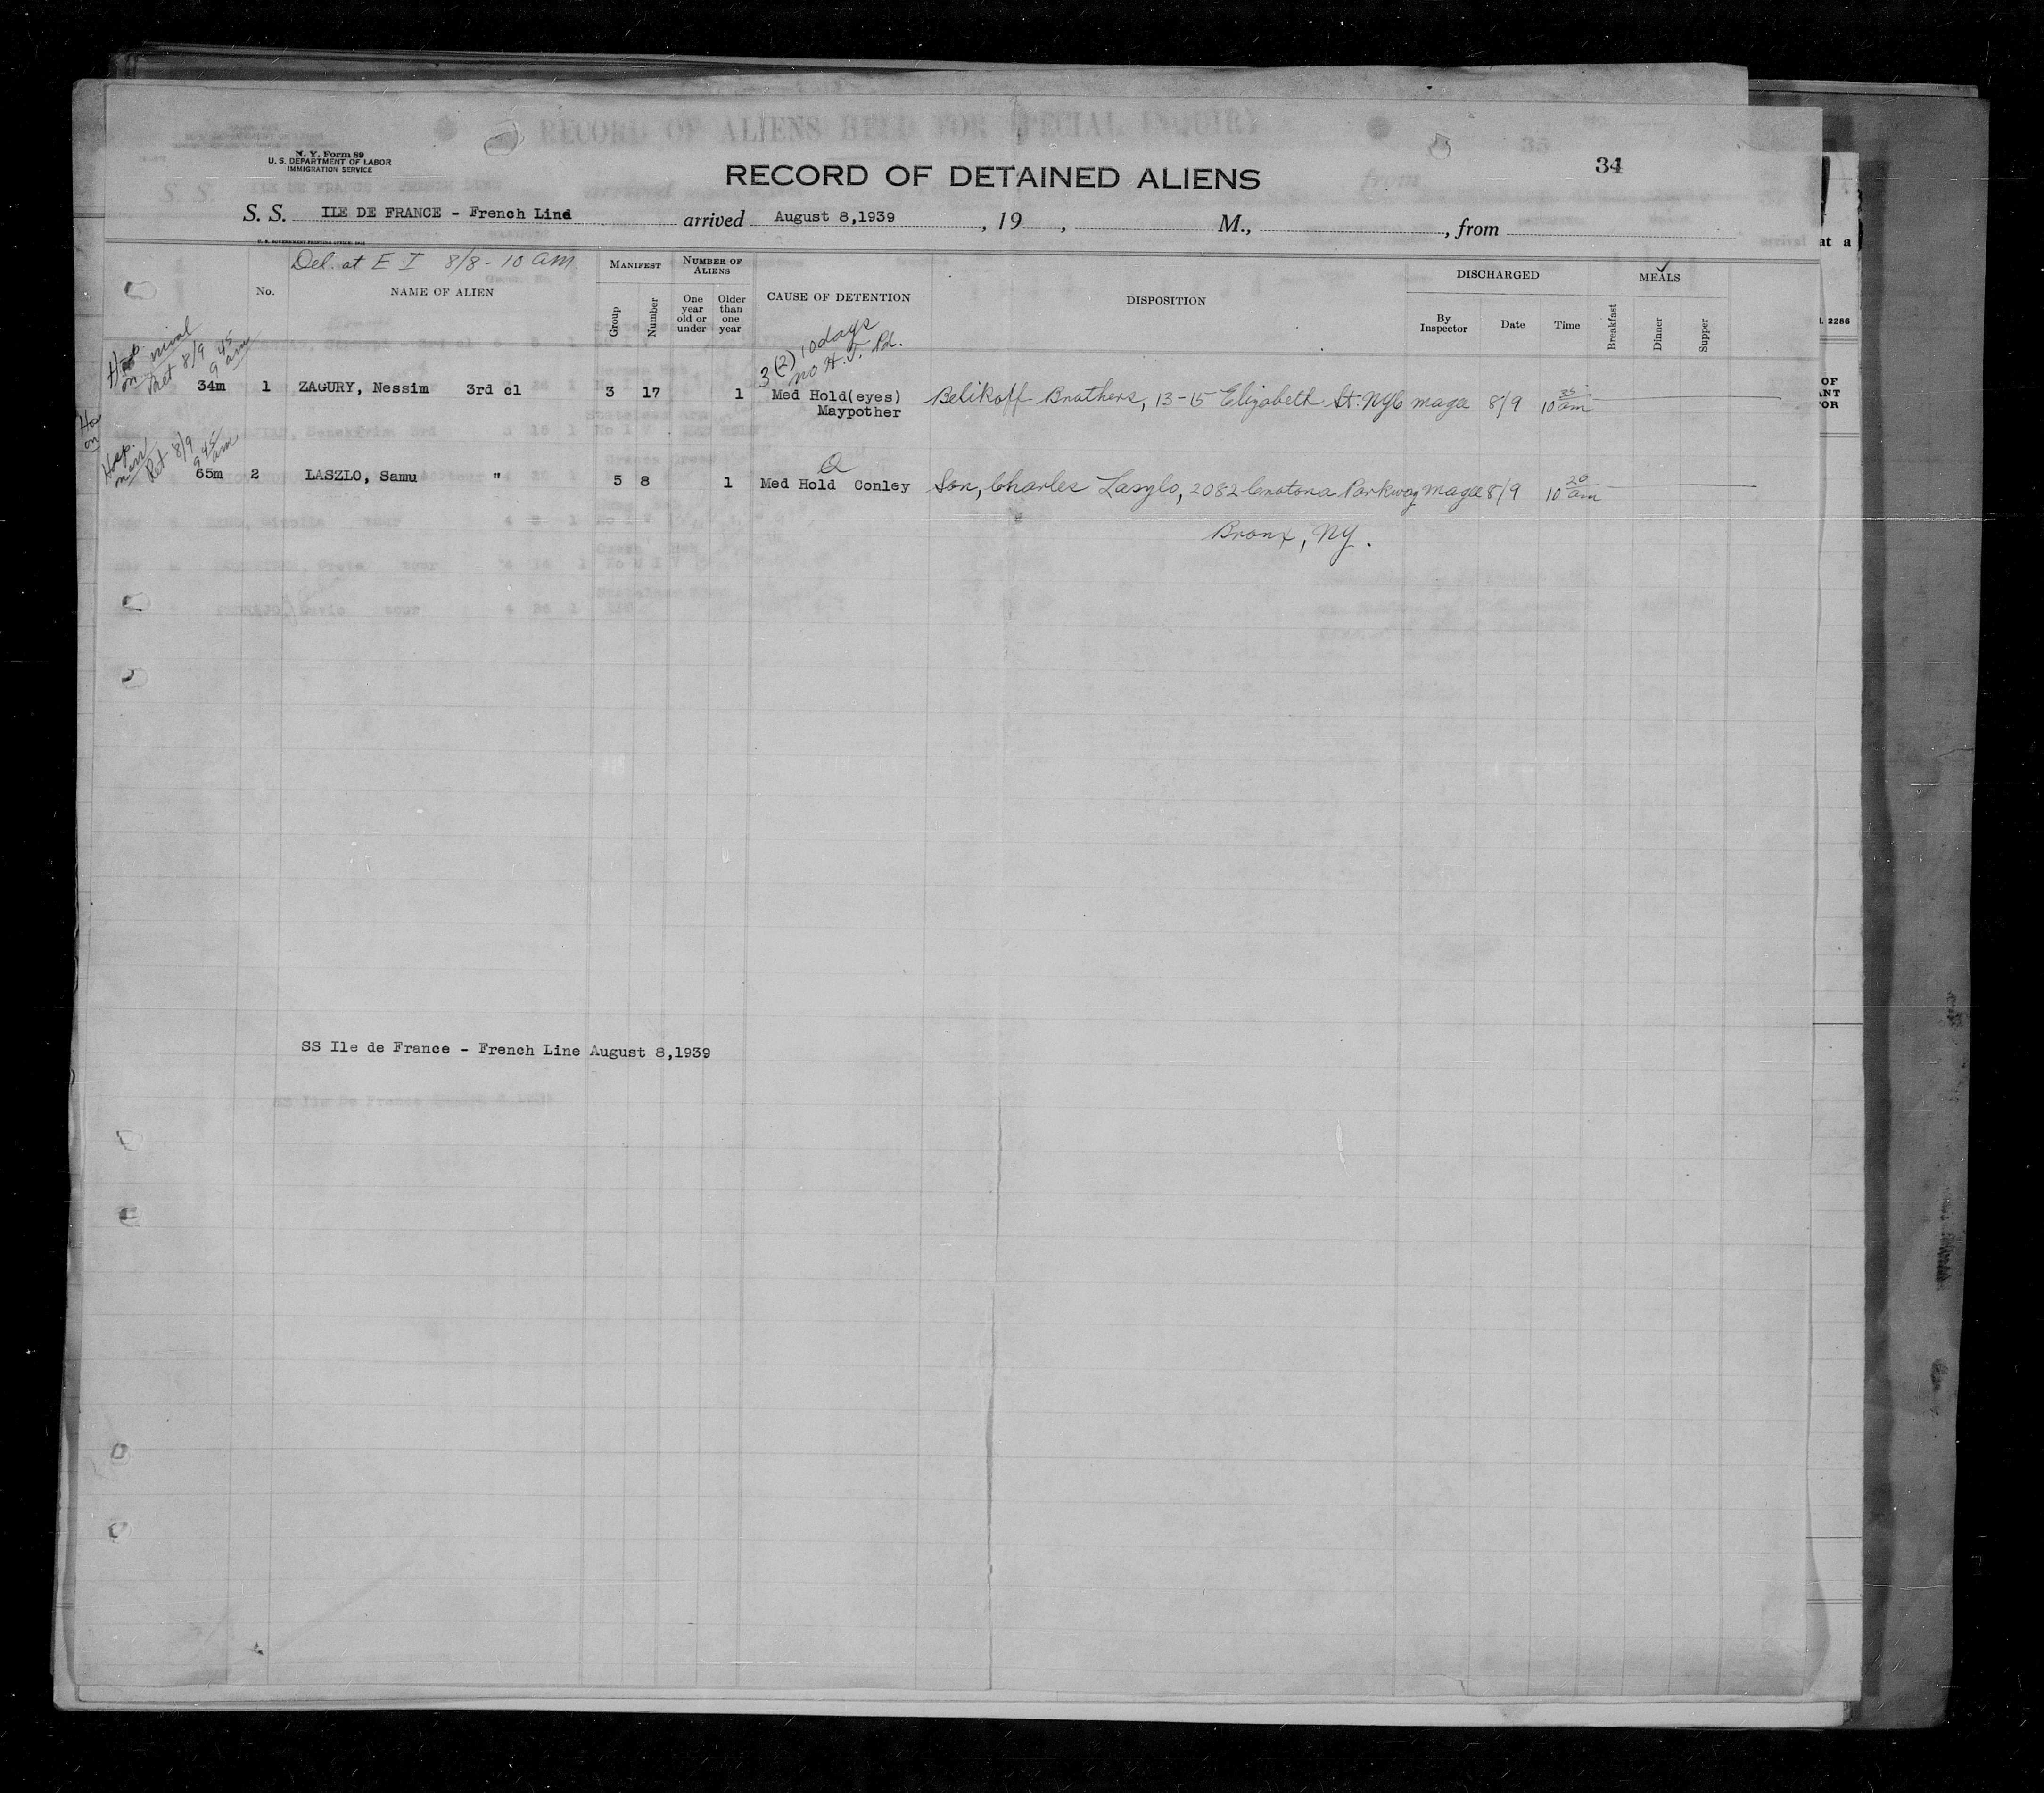 N. Y. Form 89
U. S. DEPARTMENT OF LABOR
IMMIGRATION SERVICE
RECORD OF DETAINED ALIENS
34
S. S. ILE DE FRANCE - French Line arrived August 8,1939, 19 , M., , from
U. S. GOVERNMENT PRINTING OFFICE
Del. at E I 8/8 - 10 AM.
No.
NAME OF ALIEN
MANIFEST
Group
Number
NUMBER OF ALIENS
One year old or under
Older than one year
CAUSE OF DETENTION
DISPOSITION
DISCHARGED
By Inspector
Date
Time
MEALS
Breakfast
Dinner
Supper
Hosp. on
Ret 8/9 9 45 am
3(2) 10 days
no H.T. Pd.
34m 1 ZAGURY, Nessim 3rd cl 3 17 1 Med Hold(eyes) Belikoff Brothers, 13-15 Elizabeth St. NYC Magee 8/9 10 35 am
Maypother
Hosp. on
Ret 8/9 9 45 am
65m 2 LASZLO, Samu " 5 8 1 Med Hold Conley Son, Charles Laszlo, 2082 Crotona Parkway Magee 8/9 10 20 am
Bronx, NY.
SS Ile de France - French Line August 8,1939
at a
2286
OF
ANT
OR